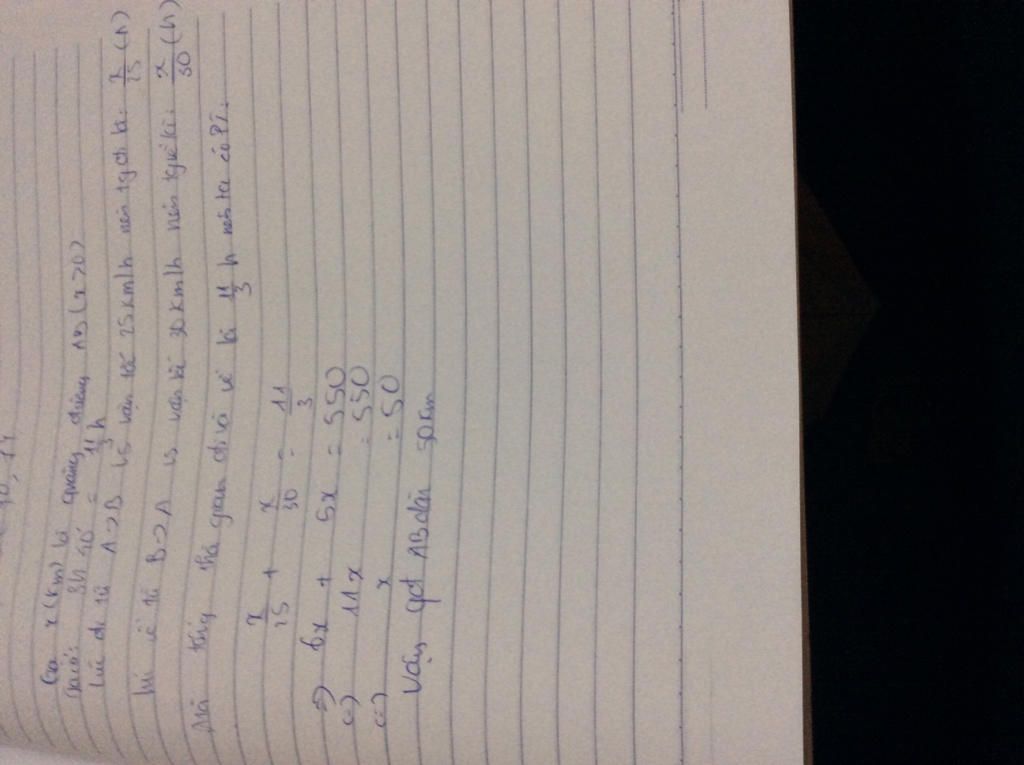 Gọi x (km) là quãng đường AB (x>0)
Đổi: 3h 40' = 11/3 h
Lúc đi từ A->B vs vận tốc 25 km/h nên tg đi là: x/25 (h)
lúc về từ B->A vs vận tốc 30 km/h nên tg về là: x/30 (h)
Mà tổng thời gian đi và về là 11/3 h nên ta có Pt:
x/25 + x/30 = 11/3
=> 6x + 5x = 550
(=) 11x = 550
(=) x = 50
Vậy qđ AB dài 50 km